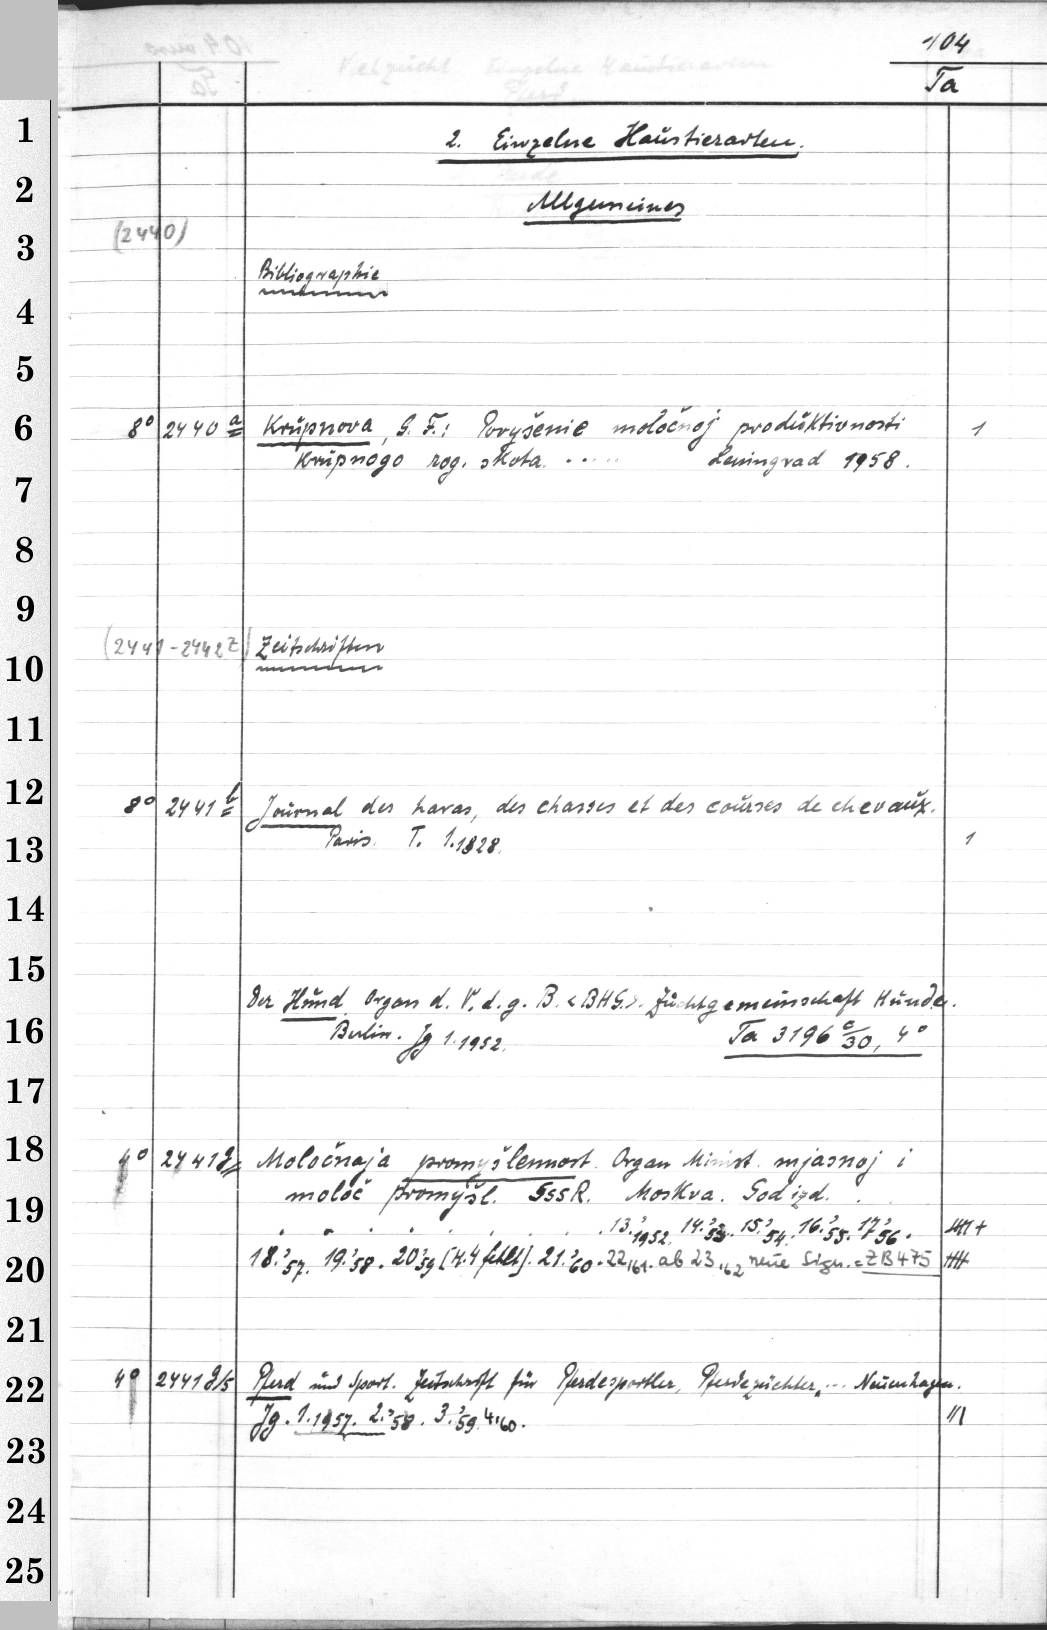 104
Ta
2. Einzelne Haustierarten.
Allgemeines
(2440)
Bibliographie
8° 2440 a Krupnova, G. F.: Povyšenie moločnoj produktivnosti 1
krupnogo rog. skota. ..... Leningrad 1958.
(2441-2442z) Zeitschriften
8° 2441 b Journal des haras, des chasses et des courses de chevaux.
Paris. T. 1.1828. 1
Der Hund. Organ d. V. d. g. B. <BHG>. Zuchtgemeinschaft Hunde.
Berlin. Jg 1.1952. Ta 3196 c/30, 4°
4° 2441 g Moločnaja promyšlennost. Organ Minist. mjasnoj i
moloč promyšl. SSSR. Moskva. God izd. . .
. . . . . . . . 13.'1952. 14.'53. 15.'54. 16.'55. 17.'56.
18.'57. 19.'58. 20.'59 [H.4 fehlt]. 21.'60. 22.'61. ab 23.'62 neue Sign. = ZB 475
4° 2441 g/5 Pferd und Sport. Zeitschrift für Pferdesportler, Pferdezüchter, ... Neuenhagen.
Jg. 1.1957. 2.'58. 3.'59. 4.'60. III
1
2
3
4
5
6
7
8
9
10
11
12
13
14
15
16
17
18
19
20
21
22
23
24
25